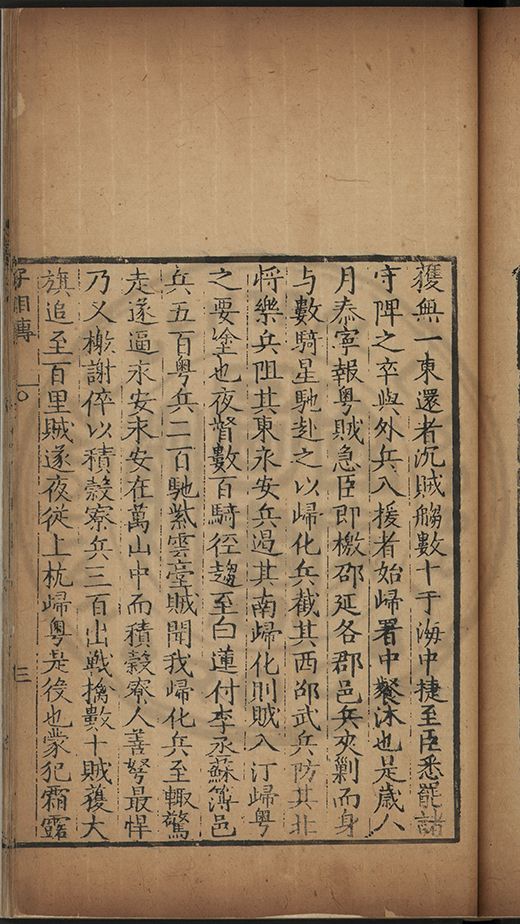 獲無一東還者沉賊艑數十于海中捷至臣悉罷諸
守陴之卒與外兵入援者始歸署中餐沐也是歲八
月泰寧報粤賊急臣即檄邵延各郡邑兵夾剿而身
与數騎星馳赴之以歸化兵截其西邵武兵防其北
将樂兵阻其東永安兵遏其南歸化則賊入汀歸粤
之要塗也夜督數百騎径趨至白蓮付李丞蘇簿邑
兵五百粤兵二百馳紫雲臺賊聞我歸化兵至輙驚
走遂逼永安永安在萬山中而積榖寮人善弩最悍
乃又檄謝倅以積榖寮兵三百出戦擒數十賊獲大
旗追至百里賊遂夜従上杭歸粤是役也蒙犯霜露
相傳 一〇 三